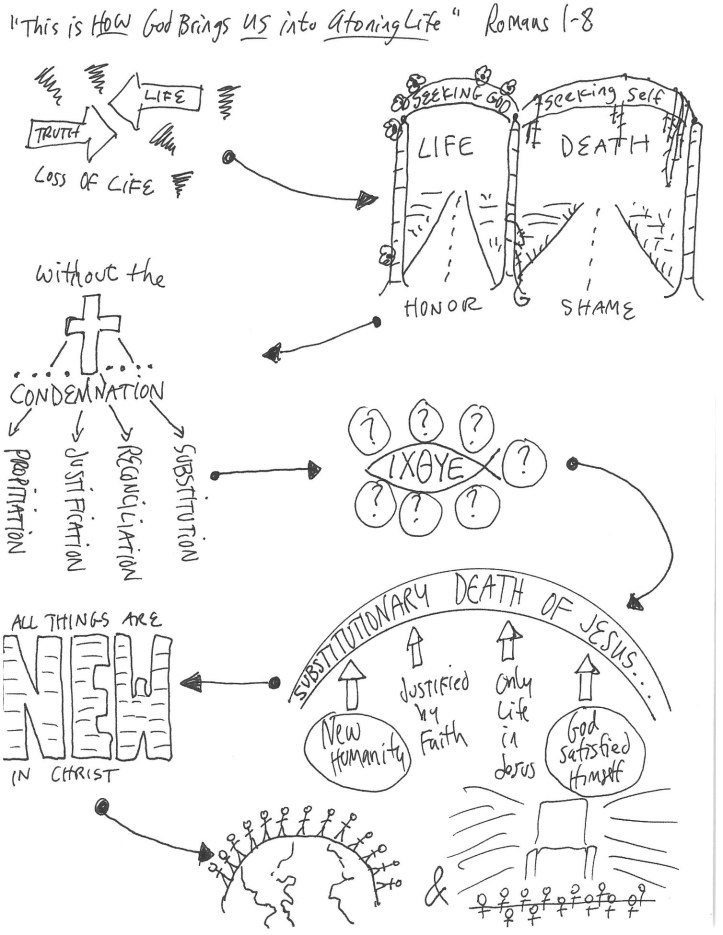 "This is HOW God Brings US into Atoning Life" Romans 1-8
LIFE
TRUTH
LOSS OF LIFE
SEEKING GOD
Seeking Self
LIFE
DEATH
HONOR
SHAME
without the
CONDEMNATION
PROPITIATION
JUSTIFICATION
RECONCILIATION
SUBSTITUTION
? ? ?
ΙΧΘΥΕ
?
? ? ?
SUBSTITUTIONARY DEATH OF JESUS...
New
Humanity
Justified
by
Faith
Only
Life
in
Jesus
God
Satisfied
Himself
ALL THINGS ARE
NEW
IN CHRIST
&